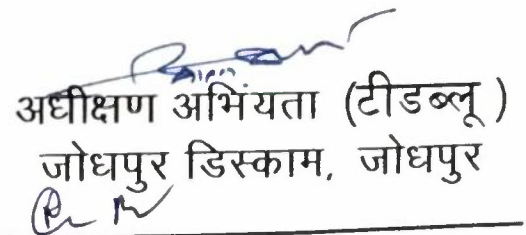 अधीक्षण अभिंयता (टीडब्लू )
जोधपुर डिस्काम, जोधपुर